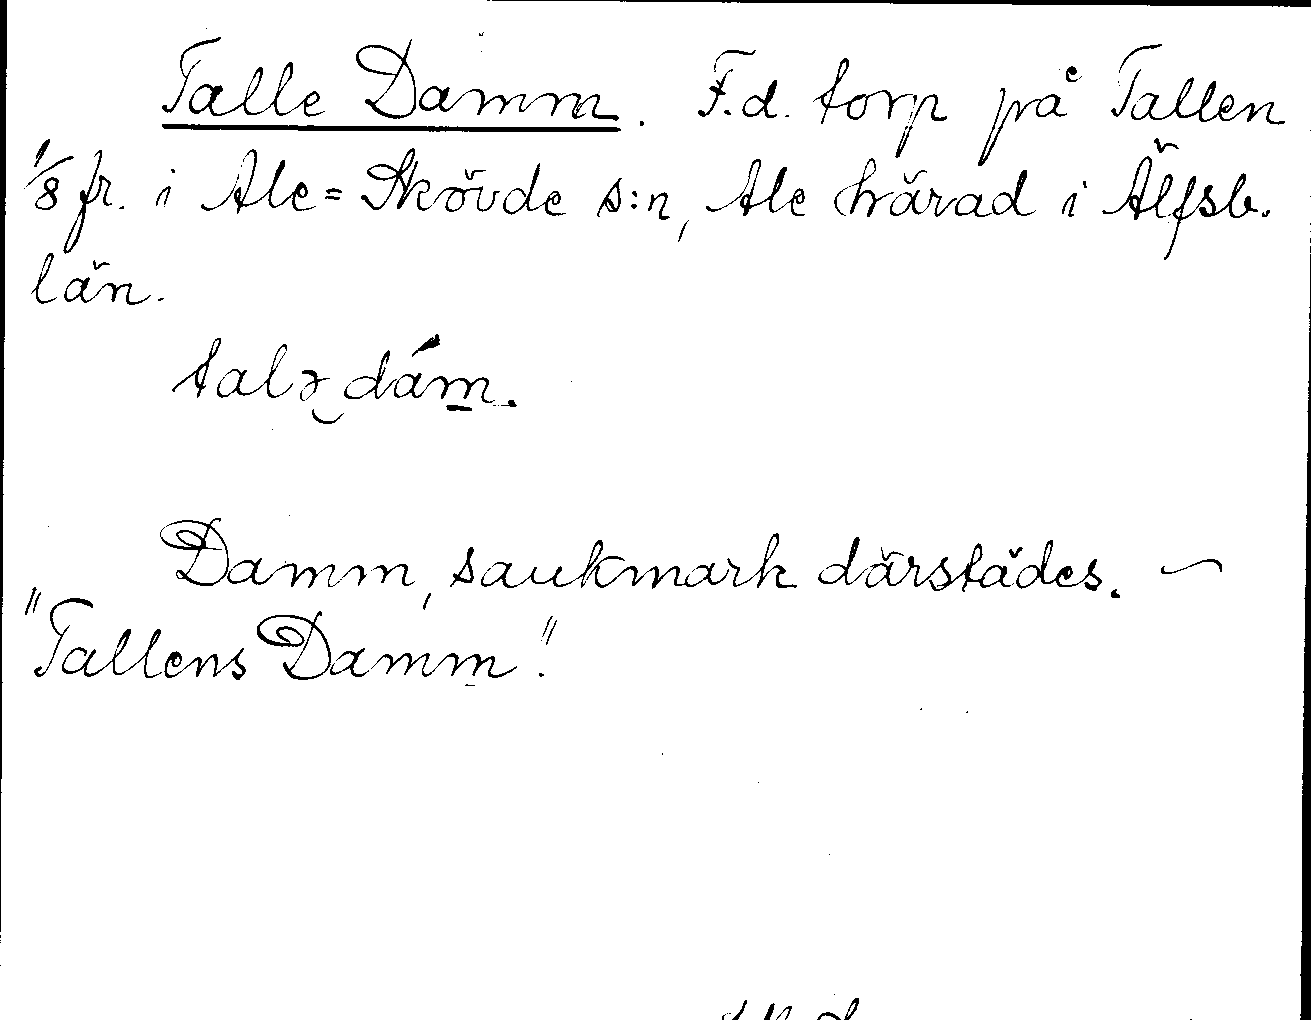 Talle Damm. F.d. torp på Tallen
1/8 fr. i Ale=Skövde s:n, Ale härad i Älfsb.
län.
talə dám.
Damm, sankmark därstädes. —
"Tallens Damm".